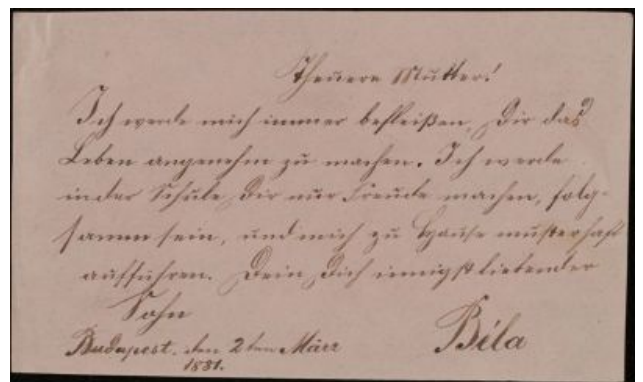 Theuere Mutter!
Ich werde mich immer befleißen, Dir das
Leben angenehm zu machen. Ich werde
in der Schule Dir nur Freude machen, folg-
samm sein, und mich zu Hause musterhaft
aufführen. Dein Dich innigst liebender
Sohn
Budapest. den 2ten März
1881.
Béla